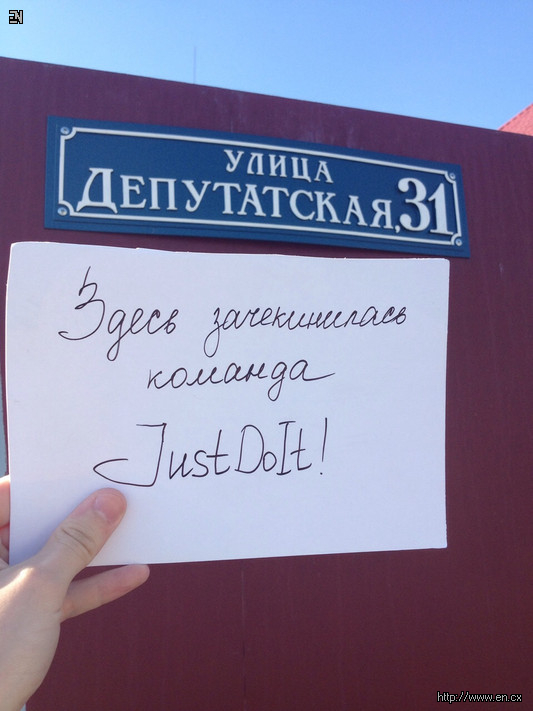 EN
УЛИЦА
ДЕПУТАТСКАЯ, 31
Здесь зачекинилась
команда
JustDoIt!
http://www.en.cx